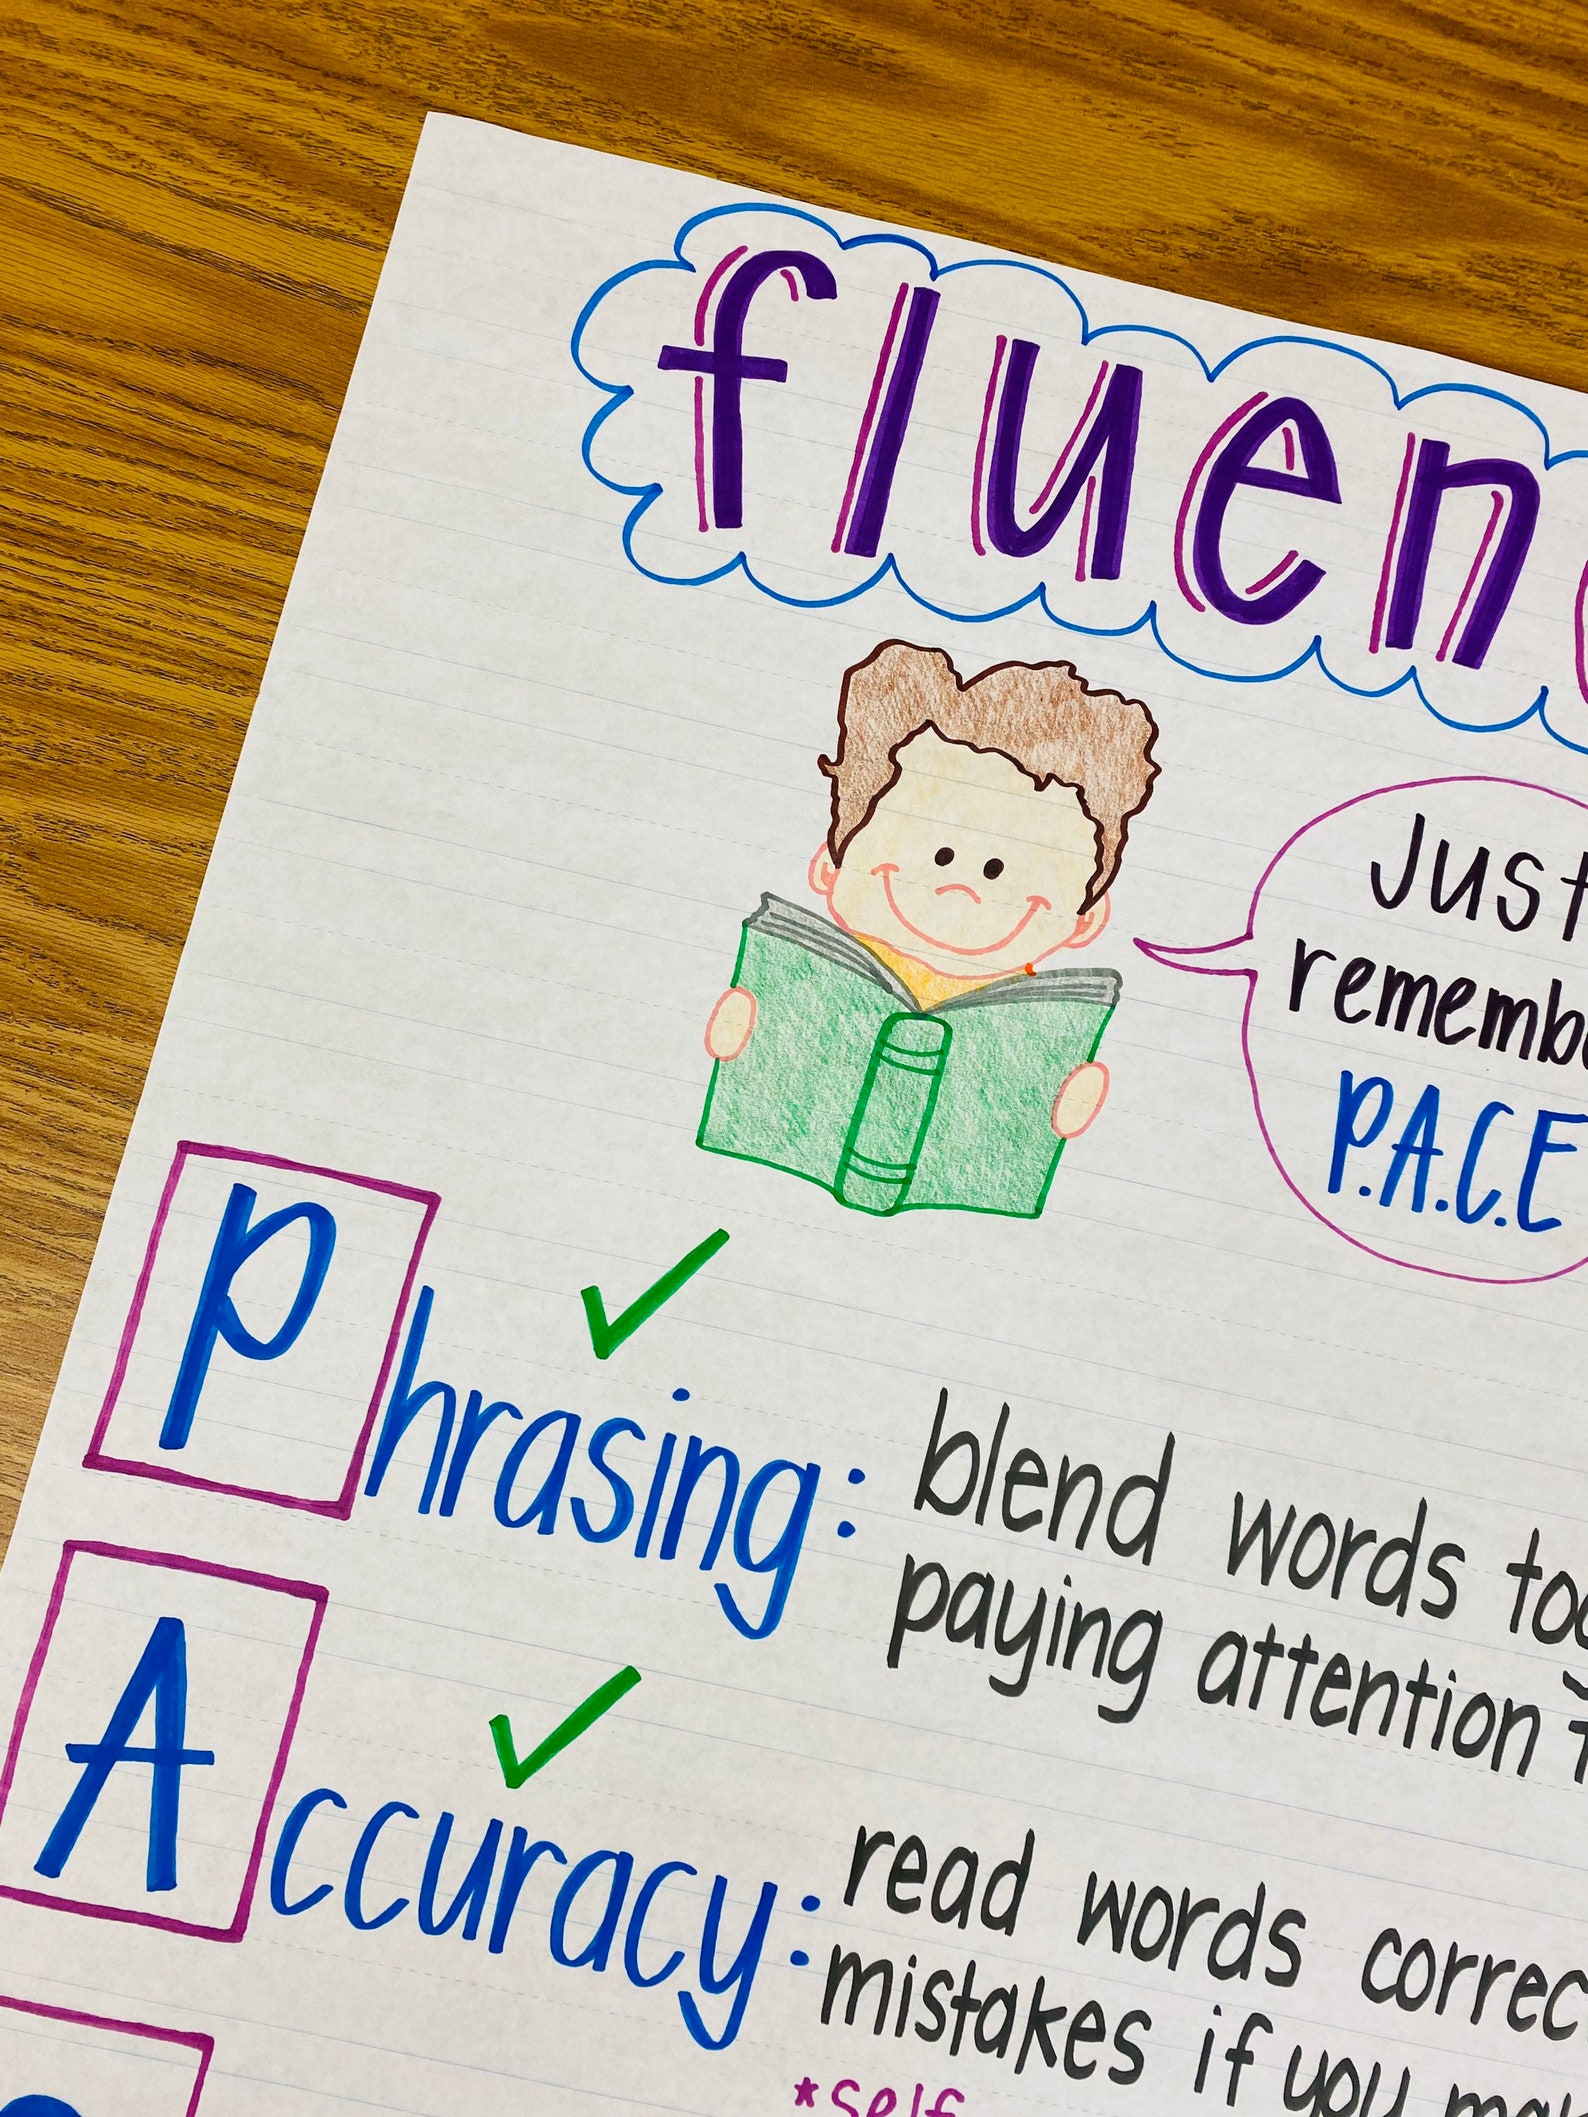 fluen
Just
remembe
P.A.C.E
Phrasing: blend words tog
paying attention t
Accuracy: read words correc
mistakes if you ma
*self